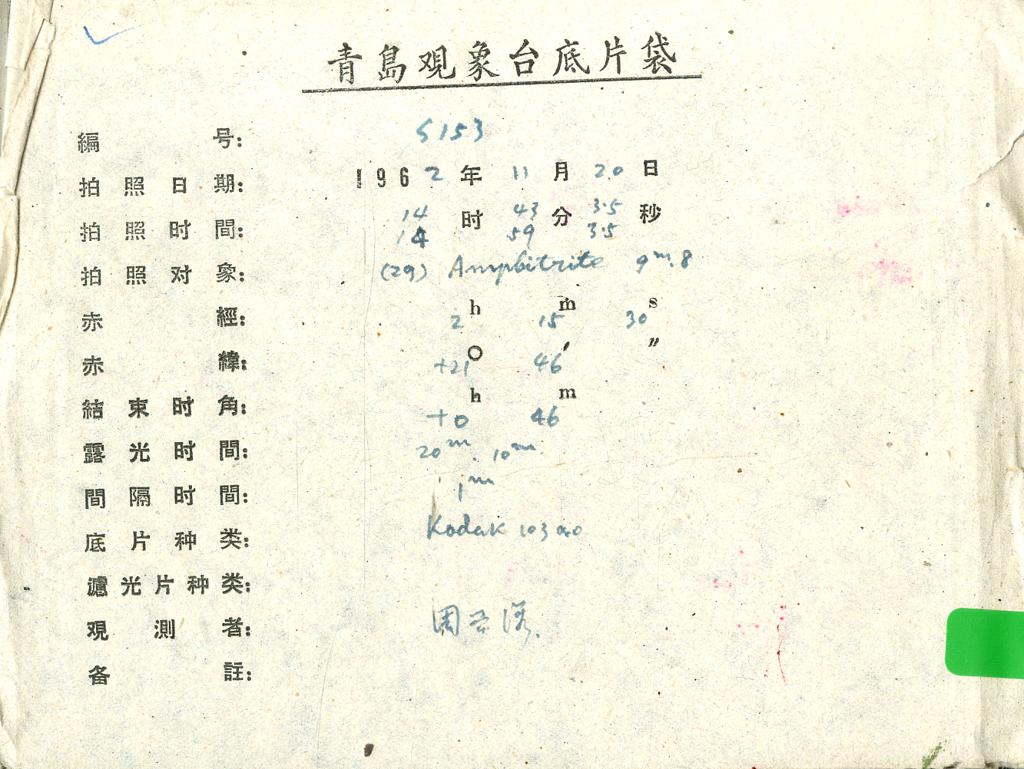 青島观象台底片袋
編号: 5153
拍照日期: 1962年11月20日
拍照时間: 14时43分3.5秒
14 59 3.5
拍照对象: (29) Amphitrite 9m.8
赤經: 2h 15m 30s
赤緯: +21° 46′ ″
結束时角: +0h 46m
露光时間: 20m. 10m.
間隔时間: 1m
底片种类: Kodak 103a0
濾光片种类:
观測者: 周
备註: